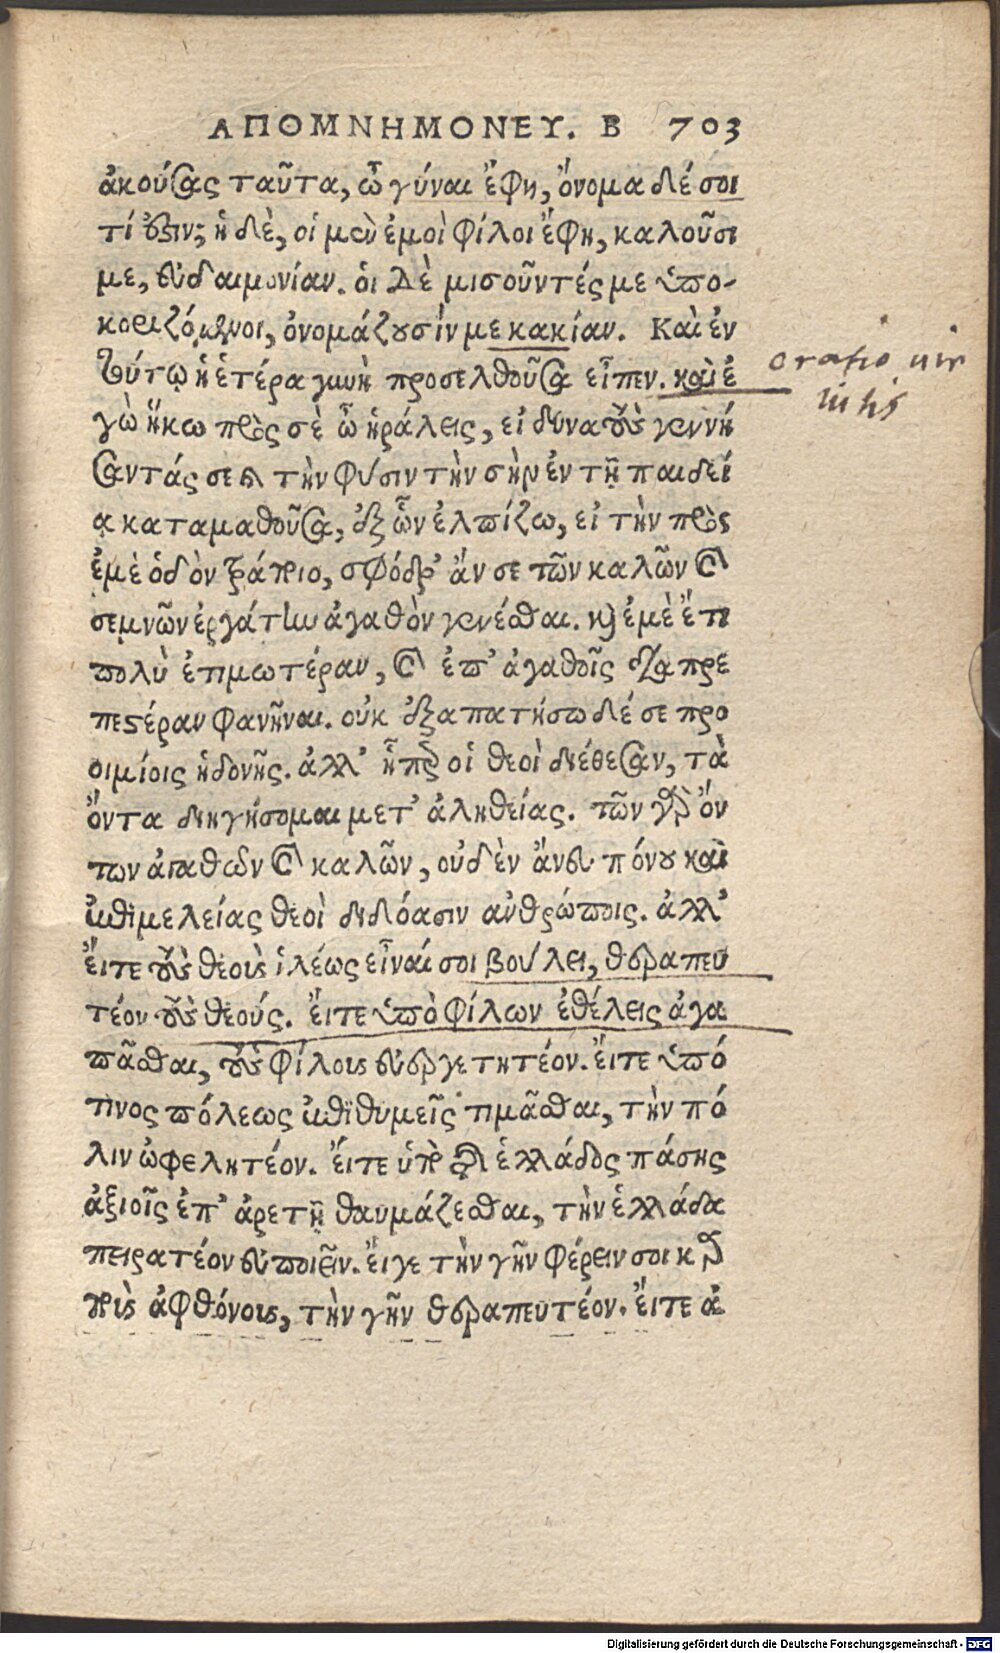 ΑΠΟΜΝΗΜΟΝΕΥ. Β 703
ἀκούσας ταῦτα, ὦ γύναι ἔφη, ὄνομα δέ σοι
τί ἐστιν; ἡ δὲ, οἱ μὲν ἐμοὶ φίλοι ἔφη, καλοῦσι
με, εὐδαιμονίαν. οἱ δὲ μισοῦντές με ὑπο-
κοριζόμενοι, ὀνομάζουσίν με κακίαν. Καὶ ἐν
τούτῳ ἡ ἑτέρα γυνὴ προσελθοῦσα εἶπεν. καὶ ἐ
oratio vir
tutis
γὼ ἥκω πρὸς σὲ ὦ ἡράλεις, εἰδυῖα τοὺς γεννή
σαντάς σε καὶ τὴν φύσιν τὴν σὴν ἐν τῇ παιδεί
ᾳ καταμαθοῦσα, ἐξ ὧν ἐλπίζω, εἰ τὴν πρὸς
ἐμὲ ὁδὸν τράποιο, σφόδρ' ἄν σε τῶν καλῶν καὶ
σεμνῶν ἐργάτην ἀγαθὸν γενέσθαι. καὶ ἐμὲ ἔτι
πολὺ ἐτιμωτέραν, καὶ ἐπ' ἀγαθοῖς διαπρε
πεστέραν φανῆναι. οὐκ ἐξαπατήσω δέ σε προ
οιμίοις ἡδονῆς. ἀλλ' ᾗπερ οἱ θεοὶ διέθεσαν, τὰ
ὄντα διηγήσομαι μετ' ἀληθείας. τῶν γὰρ ὄν
των ἀγαθῶν καὶ καλῶν, οὐδὲν ἄνευ πόνου καὶ
ἐπιμελείας θεοὶ διδόασιν ἀνθρώποις. ἀλλ'
ἔιτε τοὺς θεοὺς ἱλέως εἶναί σοι βούλει, θεραπευ
τέον τοὺς θεούς. ἔιτε ὑπὸ φίλων ἐθέλεις ἀγα
πᾶσθαι, τοὺς φίλους εὐεργετητέον. ἔιτε ὑπό
τινος πόλεως ἐπιθυμεῖς τιμᾶσθαι, τὴν πό
λιν ὠφελητέον. ἔιτε ὑπὸ τῆς ἑλλάδος πάσης
ἀξιοῖς ἐπ' ἀρετῇ θαυμάζεσθαι, τὴν ἑλλάδα
πειρατέον εὖ ποιεῖν. ἔιγε τὴν γῆν φέρειν σοι καρ
ποὺς ἀφθόνους, τὴν γῆν θεραπευτέον. ἔιτε ἀ
Digitalisierung gefördert durch die Deutsche Forschungsgemeinschaft - DFG